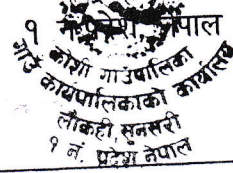 १ नेपाल
कोशी गाउँपालिका
गाउँ कार्यपालिकाको कार्यालय
लौकही, सुनसरी
१ नं. प्रदेश, नेपाल